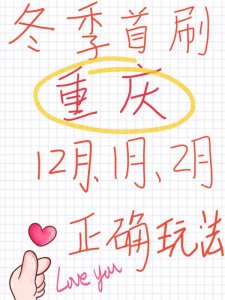 冬季首刷
重庆
12月、1月、2月
正确玩法
Love you